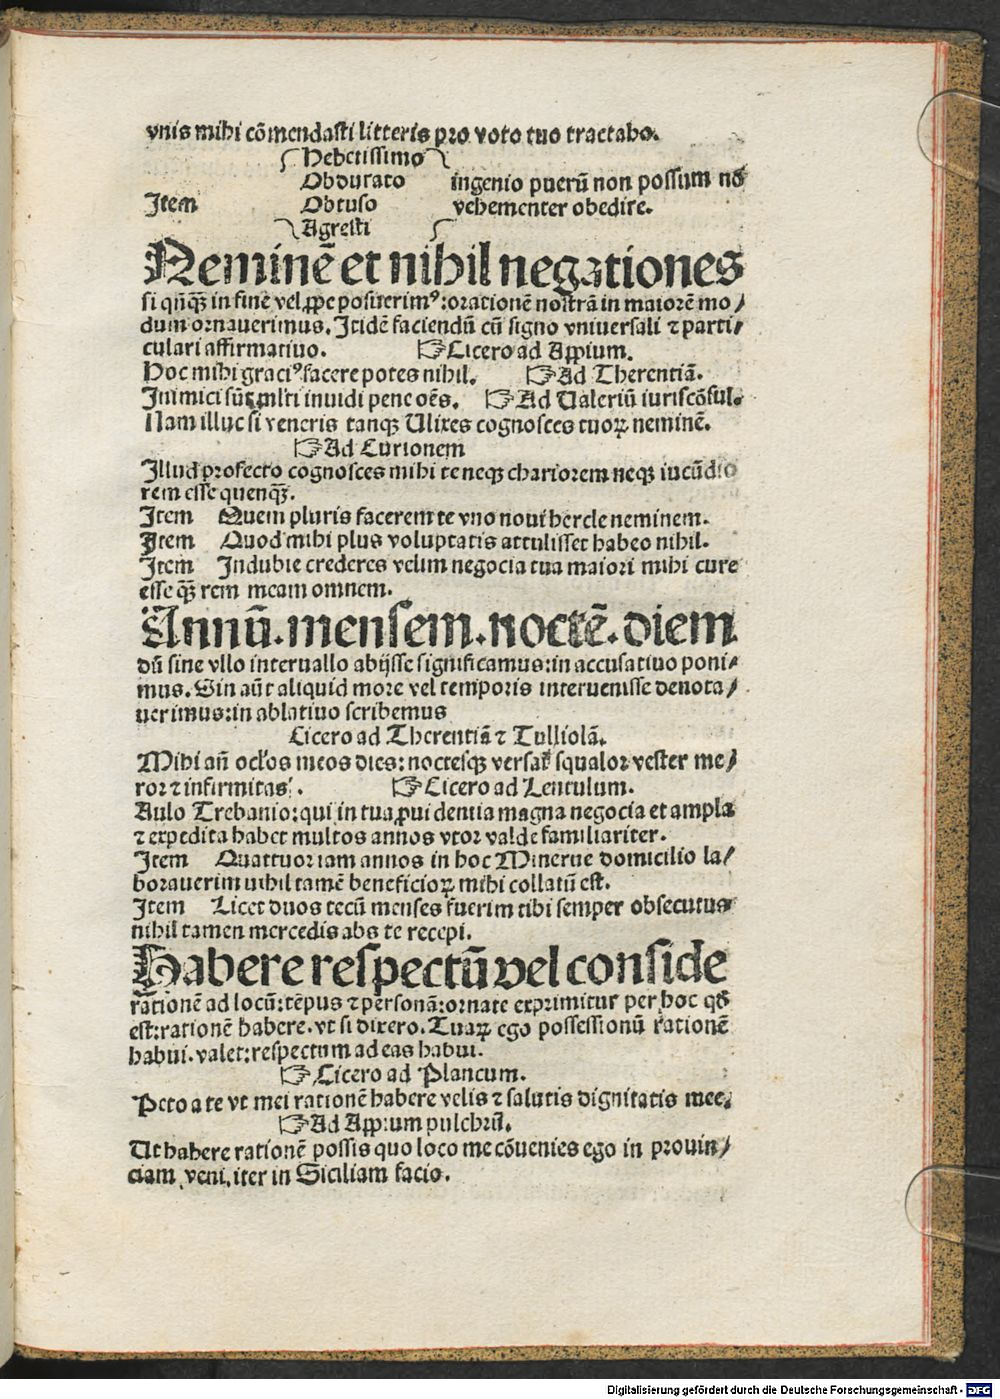 vnis mihi cōmendasti litteris pro voto tuo tractabo.
Hebetissimo
Obdurato ingenio puerū non possum nō
Item Obtuso vehementer obedire.
Agresti
Neminē et nihil negationes
si qñqꝫ in finē vel ꝓpe posuerimꝰ: orationē nostrā in maiorē mo/
dum ornauerimus. Itidē faciendū cū signo vniuersali ⁊ parti/
culari affirmatiuo. ☞ Cicero ad Appium.
Hoc mihi graciꝰ facere potes nihil. ☞ Ad Therentiā.
Inimici sūt mlti inuidi pene oēs. ☞ Ad Valeriū iuriscōsul.
Nam illuc si veneris tanqꝫ Ulixes cognosces tuoꝝ neminē.
☞ Ad Curionem
Illud profecto cognosces mihi te neqꝫ chariorem neqꝫ iucūdio
rem esse quenqꝫ̄.
Item Quem pluris facerem te vno noui hercle neminem.
Item Quod mihi plus voluptatis attulisset habeo nihil.
Item Indubie crederes velim negocia tua maiori mihi cure
esse qꝫ̄ rem meam omnem.
Annū. mensem. noctē. diem
dū sine vllo interuallo abijsse significamus: in accusatiuo poni/
mus. Sin aūt aliquid more vel temporis interuenisse denota/
uerimus: in ablatiuo scribemus
Cicero ad Therentiā ⁊ Tulliolā.
Mihi añ oclos meos dies: noctesqꝫ versat squalor vester me/
ror ⁊ infirmitas. ☞ Cicero ad Lentulum.
Aulo Trebanio: qui in tua ꝓuidentia magna negocia et ampla
⁊ expedita habet multos annos vtor valde familiariter.
Item Quattuor iam annos in hoc Minerue domicilio la/
borauerim nihil tamē beneficioꝝ mihi collatū est.
Item Licet duos tecū menses fuerim tibi semper obsecutus
nihil tamen mercedis abs te recepi.
Habere respectū vel conside
rationē ad locū: tēpus ⁊ personā: ornate exprimitur per hoc qđ
est: rationē habere. vt si dixero. Tuaꝝ ego possessionū rationē
habui. valet: respectum ad eas habui.
☞ Cicero ad Plancum.
Peto a te vt mei rationē habere velis ⁊ salutis dignitatis mee.
☞ Ad Appium pulchrū.
Ut habere rationē possis quo loco me cōuenies ego in prouin/
ciam veni. iter in Siciliam facio.
Digitalisierung gefördert durch die Deutsche Forschungsgemeinschaft - DFG